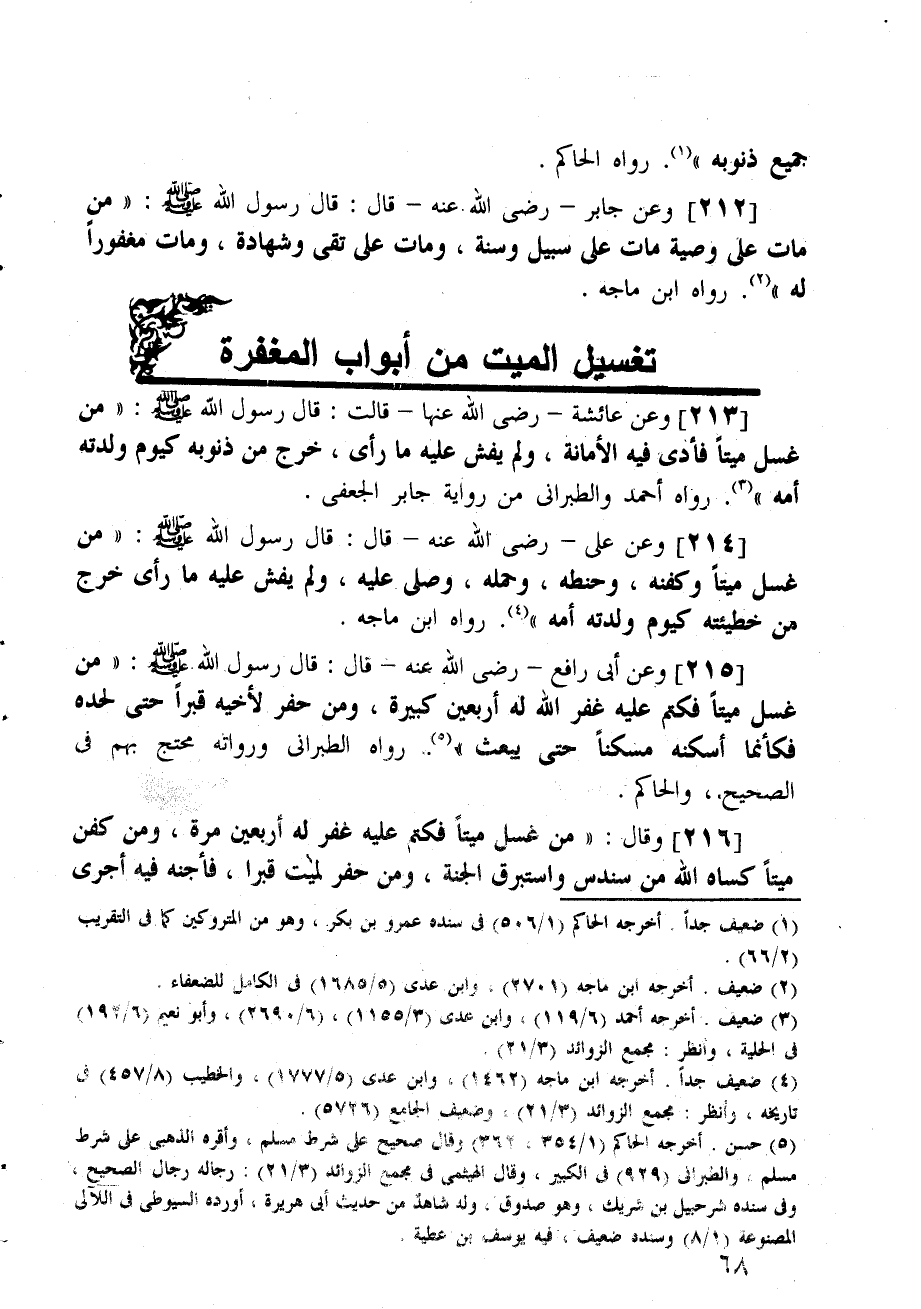 جميع ذنوبه »(١). رواه الحاكم .
[٢١٢] وعن جابر – رضى الله عنه – قال : قال رسول الله ﷺ : « من
مات على وصية مات على سبيل وسنة ، ومات على تقى وشهادة ، ومات مغفوراً
له »(٢). رواه ابن ماجه .
تغسيل الميت من أبواب المغفرة
[٢١٣] وعن عائشة – رضى الله عنها – قالت : قال رسول الله ﷺ : « من
غسل ميتاً فأدى فيه الأمانة ، ولم يفش عليه ما رأى ، خرج من ذنوبه كيوم ولدته
أمه »(٣). رواه أحمد والطبرانى من رواية جابر الجعفى .
[٢١٤] وعن على – رضى الله عنه – قال : قال رسول الله ﷺ : « من
غسل ميتاً وكفنه ، وحنطه ، وحمله ، وصلى عليه ، ولم يفش عليه ما رأى خرج
من خطيئته كيوم ولدته أمه »(٤). رواه ابن ماجه .
[٢١٥] وعن أبى رافع – رضى الله عنه – قال : قال رسول الله ﷺ : « من
غسل ميتاً فكتم عليه غفر الله له أربعين كبيرة ، ومن حفر لأخيه قبراً حتى لحده
فكأنما أسكنه مسكناً حتى يبعث »(٥). رواه الطبرانى ورواته محتج بهم فى
الصحيح ، والحاكم .
[٢١٦] وقال : « من غسل ميتاً فكتم عليه غفر له أربعين مرة ، ومن كفن
ميتاً كساه الله من سندس واستبرق الجنة ، ومن حفر لميت قبرا ، فأجنه فيه أجرى
(١) ضعيف جداً . أخرجه الحاكم (٥٠٦/١) فى سنده عمرو بن بكر ، وهو من المتروكين كما فى التقريب
(٦٦/٢) .
(٢) ضعيف . أخرجه ابن ماجه (٢٧٠١) ، وابن عدى (١٦٨٥/٥) فى الكامل للضعفاء .
(٣) ضعيف . أخرجه أحمد (١١٩/٦) ، وابن عدى (١١٥٥/٣) ، (٢٦٩٠/٦) ، وأبو نعيم (١٩٢/٦)
فى الحلية ، وأنظر : مجمع الزوائد (٢١/٣) .
(٤) ضعيف جداً . أخرجه ابن ماجه (١٤٦٢) ، وابن عدى (١٧٧٧/٥) ، والخطيب (٤٥٧/٨) فى
تاريخه ، وأنظر : مجمع الزوائد (٢١/٣) ، وضعيف الجامع (٥٧٢٦) .
(٥) حسن . أخرجه الحاكم (٣٥٤/١ ، ٣٦٢) وقال صحيح على شرط مسلم ، وأقره الذهبى على شرط
مسلم ، والطبرانى (٩٢٩) فى الكبير ، وقال الهيثمى فى مجمع الزوائد (٢١/٣) : رجاله رجال الصحيح ،
وفى سنده شرحبيل بن شريك ، وهو صدوق ، وله شاهد من حديث أبى هريرة ، أورده السيوطى فى اللالى
المصنوعة (٨/١) وسنده ضعيف ، فيه يوسف بن عطية .
٦٨